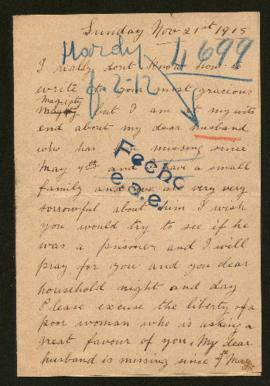 Sunday Nov 21st 1915
Hardy 4699
I really dont know how to
write to most gracious
Magisty but I am at my wits
end about my dear husband
who has missing since
May 9th and I have a small
family and we are very very
sorrowful about him I wish
you would try to see if he
was a prisoner and I will
pray for you and you dear
household night and day
Please excuse the liberty of a
poor woman who is asking a
great favour of you, My dear
husband is missing since 9th May
Fiche
e.s.e.